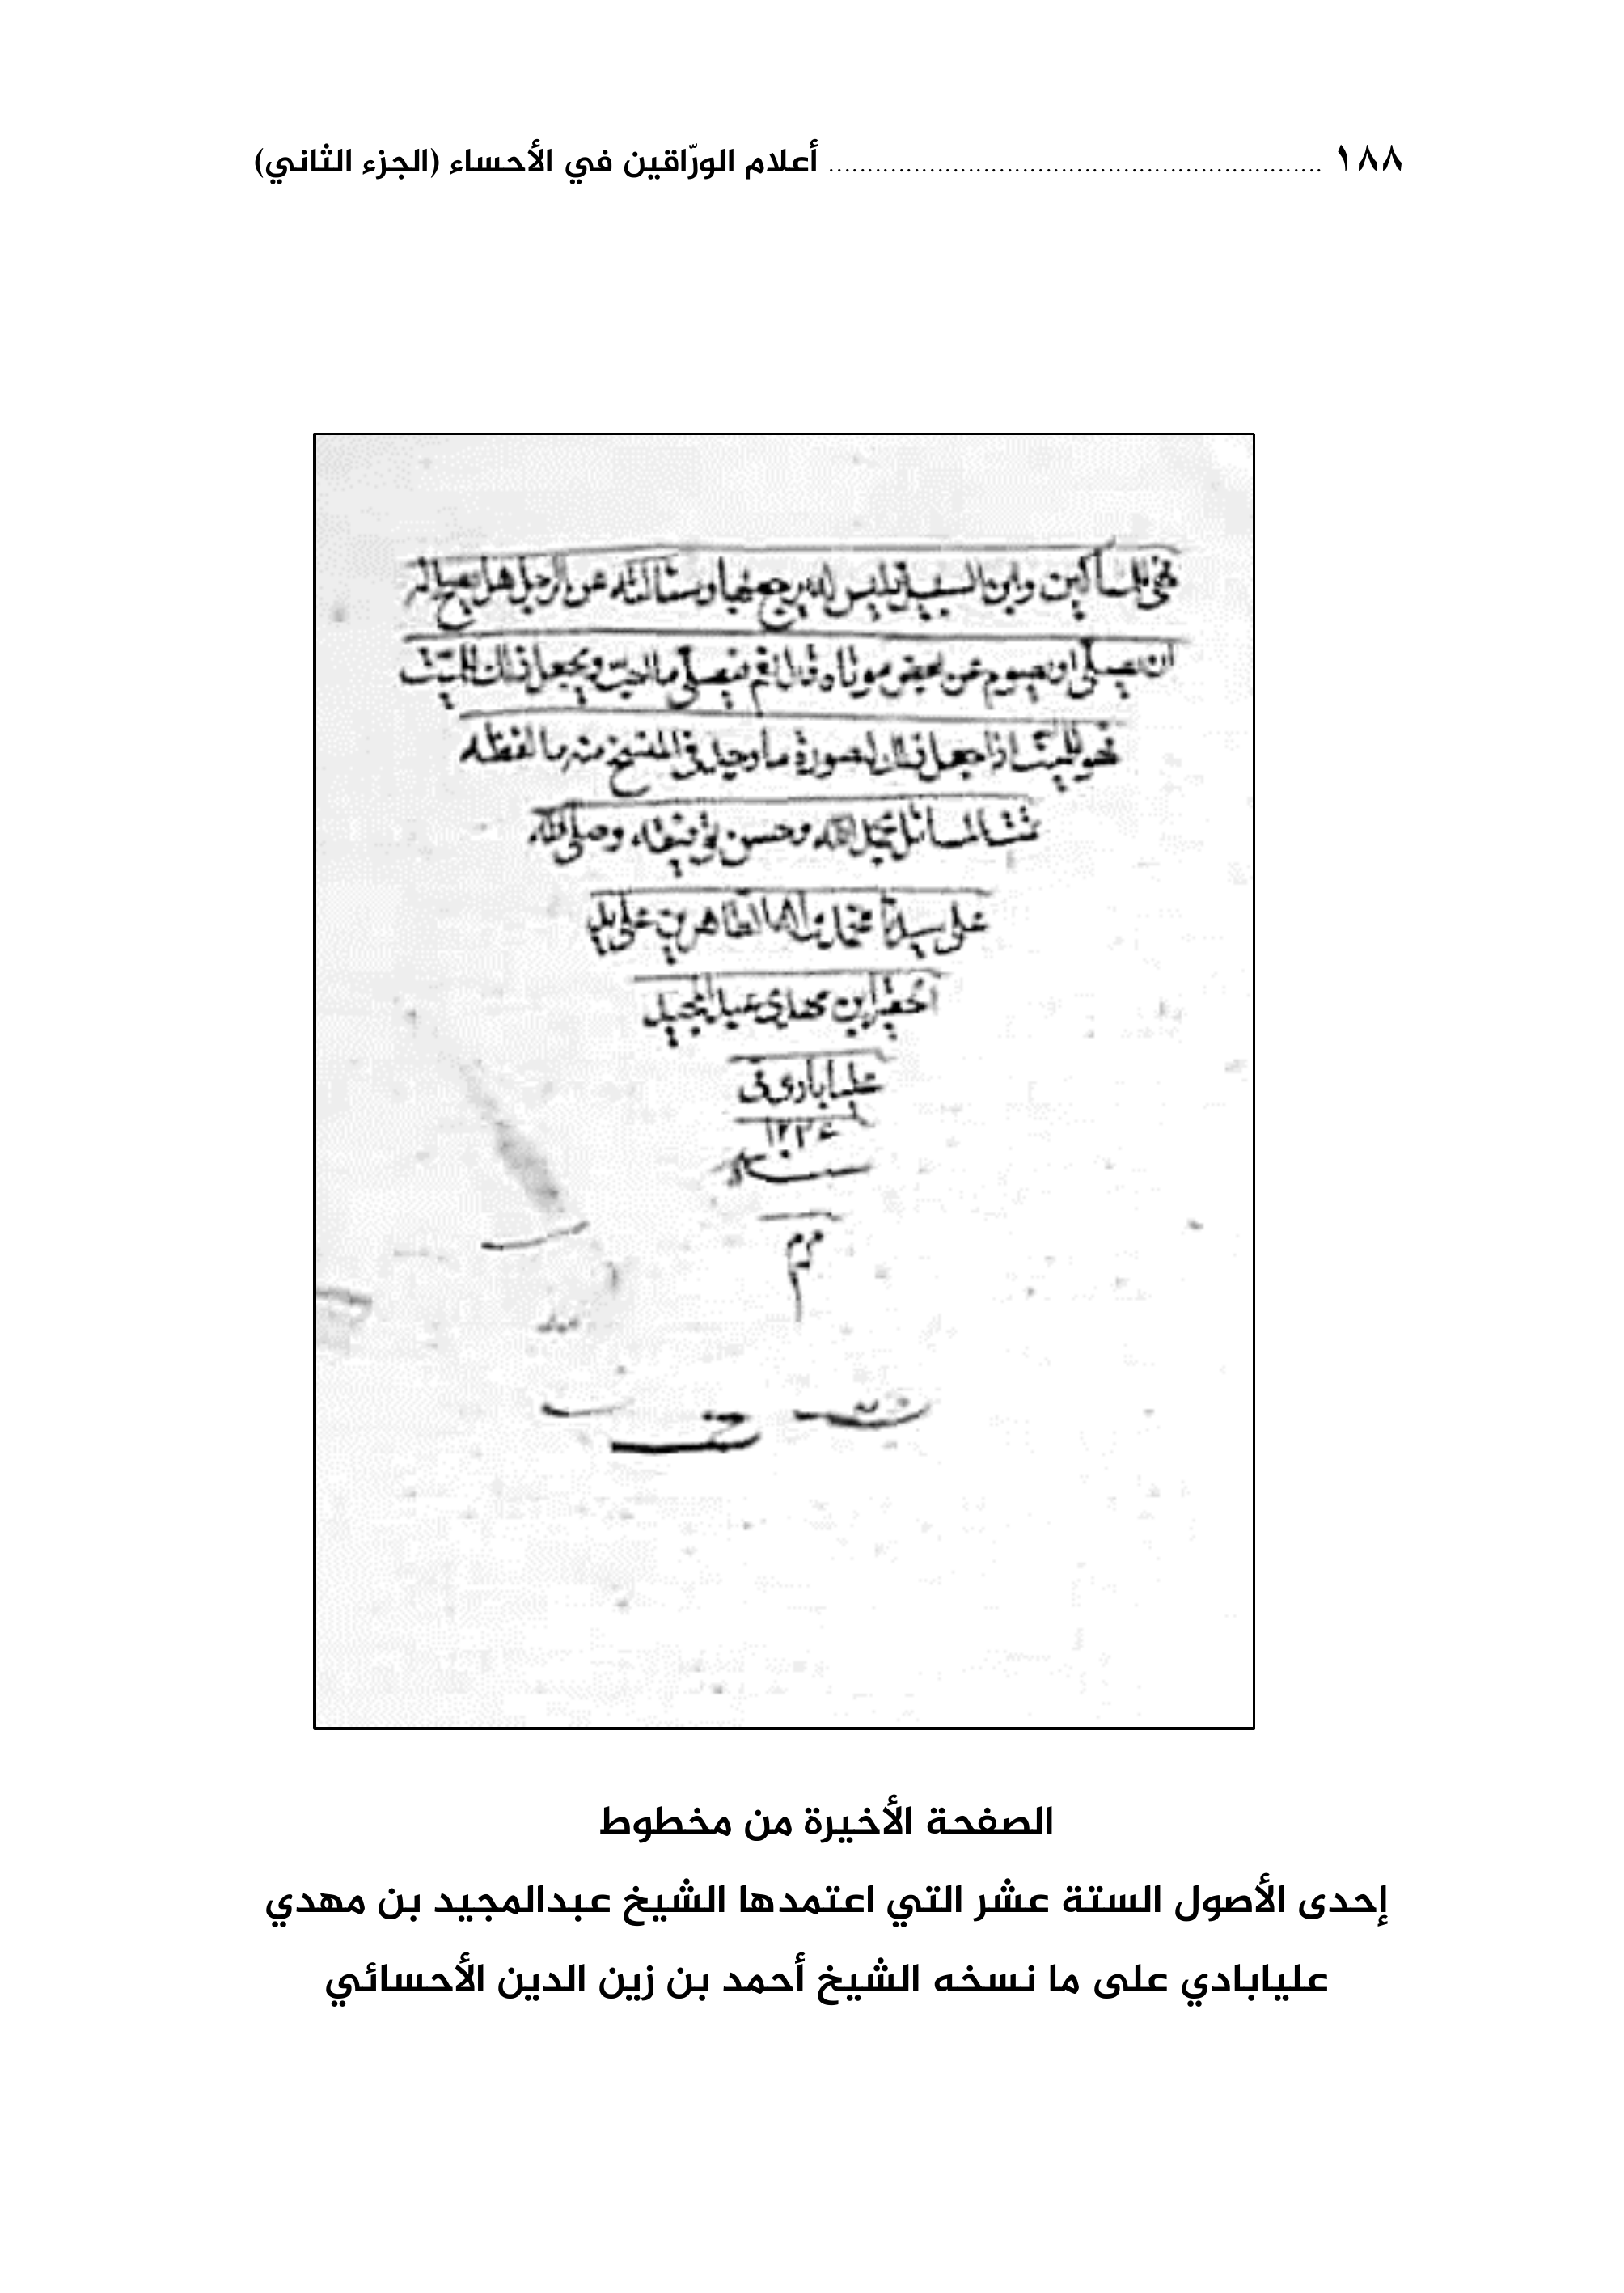 ١٨٨ ........ أعلام الورّاقين في الأحساء (الجزء الثاني)
للمساكين وابن السبيل فليس له يرجع فيها وسئالته عن الرجل هل يصح له
ان يصلى او يصوم عن بعض موتاه قال نعم فيصلى ما احب ويجعل ذلك للميت
فهو للميت اذا جعل ذلك له صورة ما وجد في المنتسخ منه ما لفظه
تمت المسائل بحمد الله وحسن توفيقه وصلى الله
على سيدنا محمد واله الطاهرين على يد
احقر ابن مهدى عبد المجيد
عليابادى فى
سنه
الصفحة الأخيرة من مخطوط
إحدى الأصول الستة عشر التي اعتمدها الشيخ عبدالمجيد بن مهدي
عليابادي على ما نسخه الشيخ أحمد بن زين الدين الأحسائي